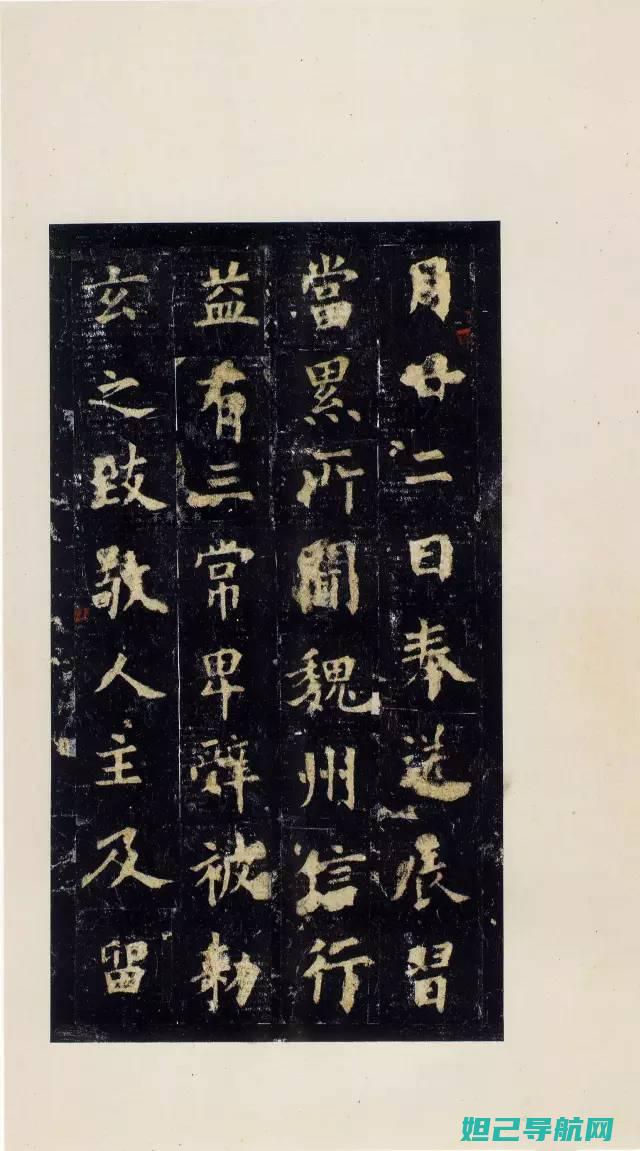 月廿二日奉送展習
當累所聞魏州信行
益有三常卑辭被勅
玄之致敬人主及留
妲己导航网